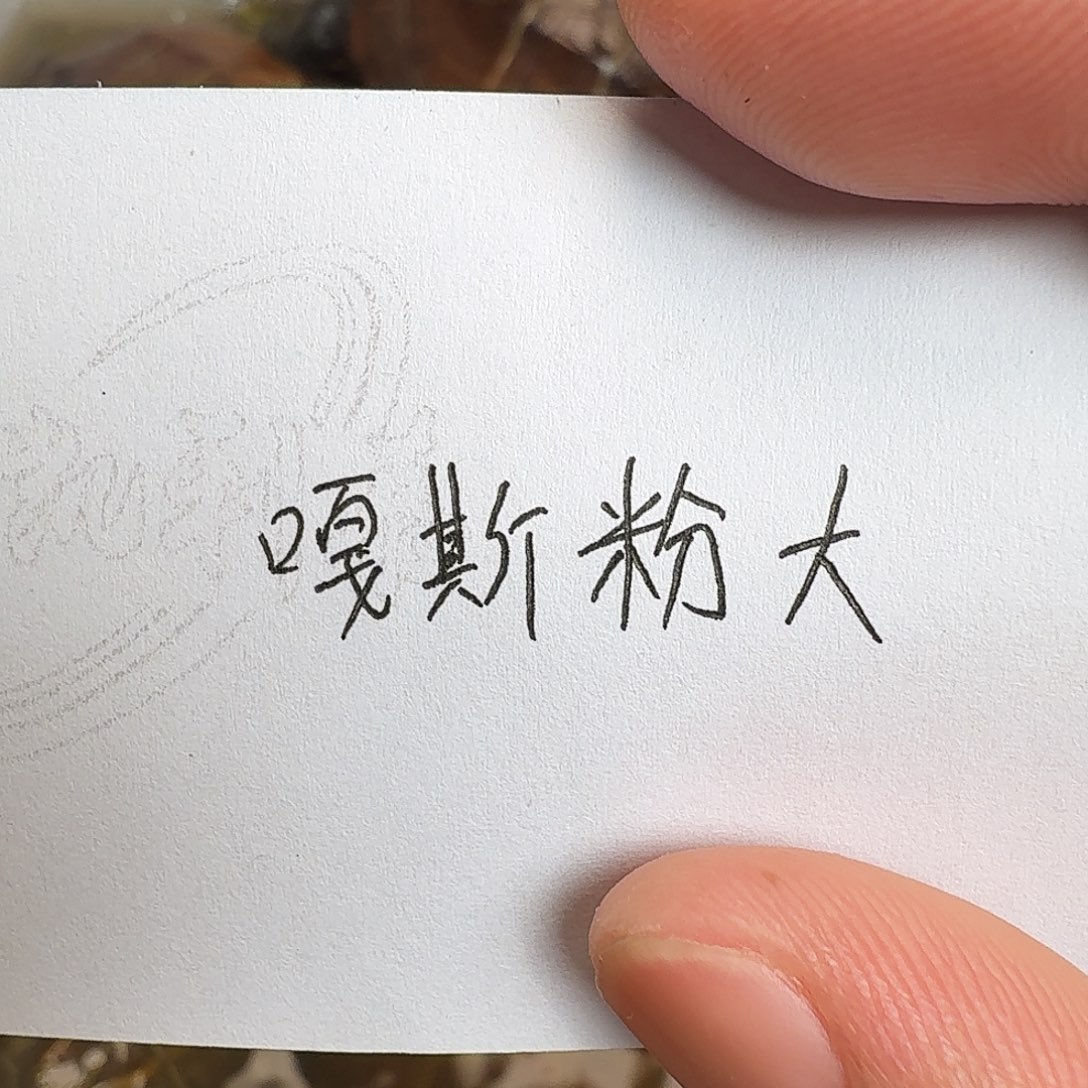 嘎斯粉大